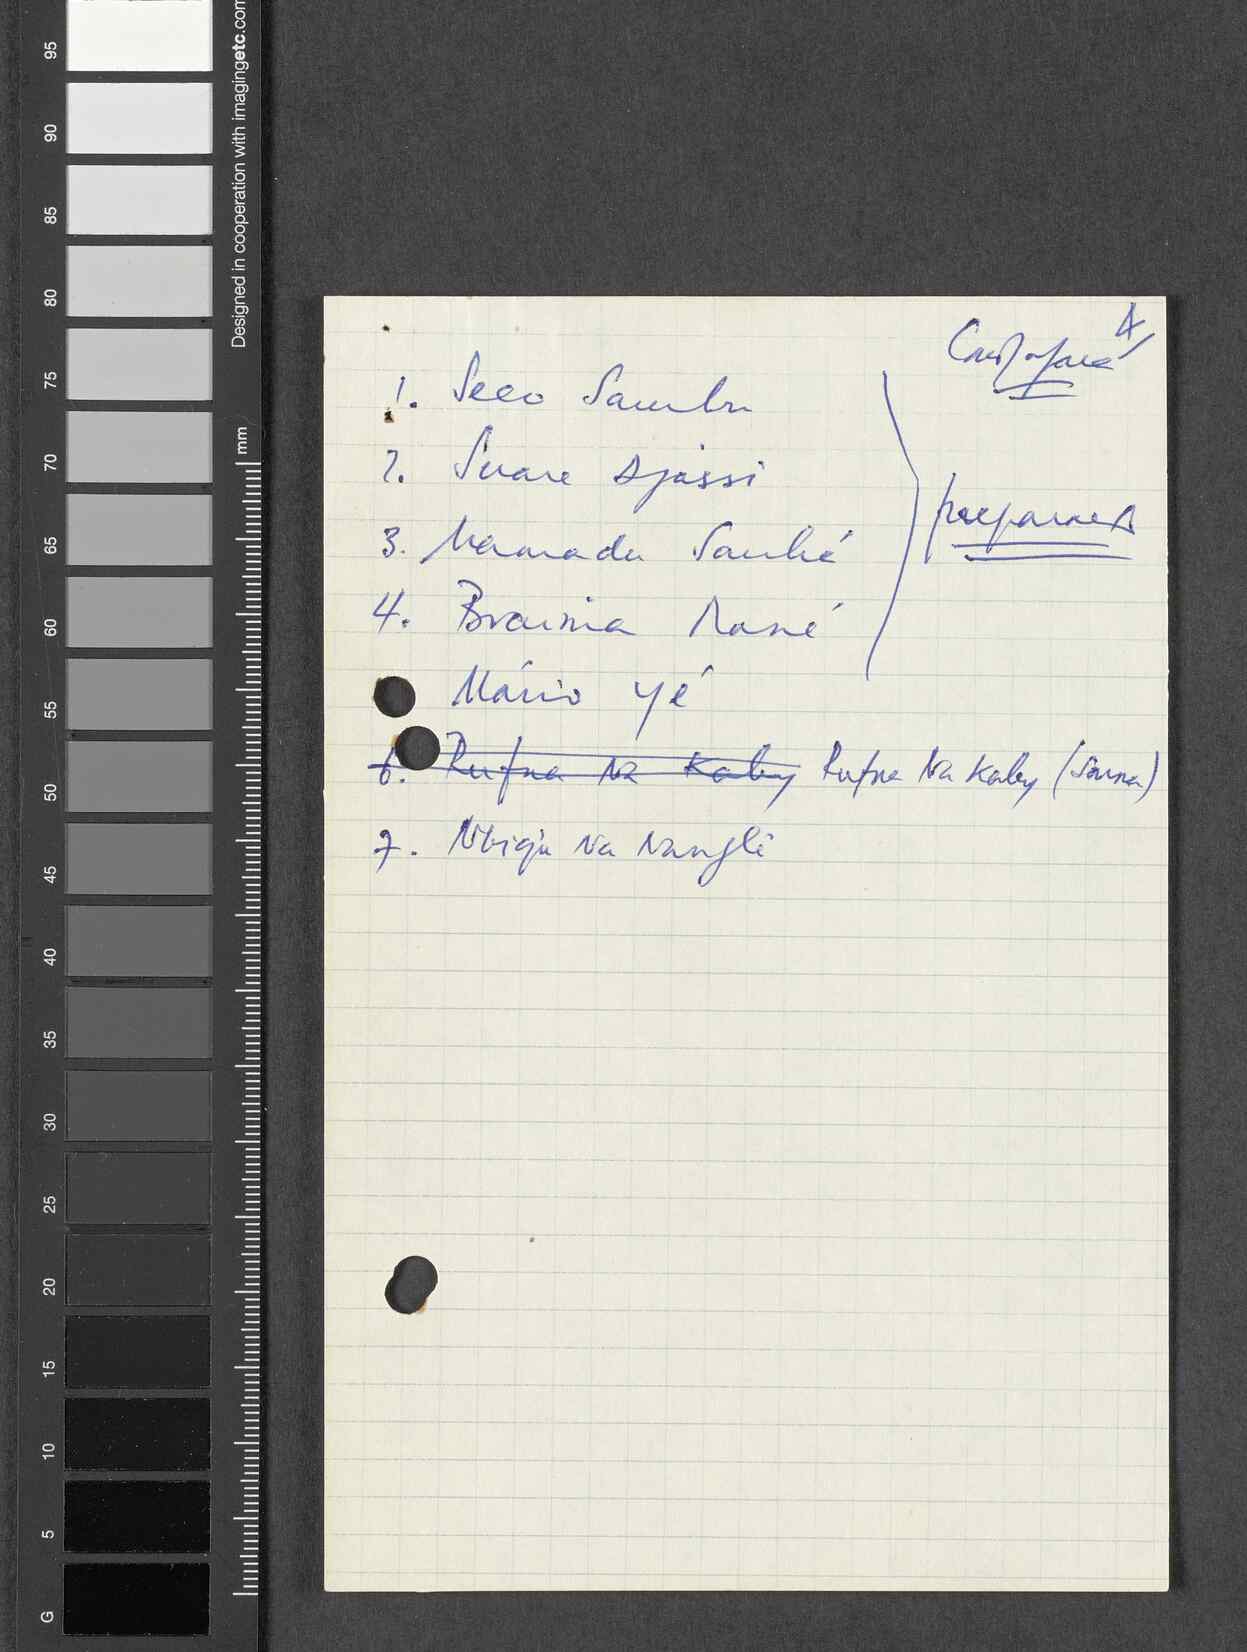 4
1. Seco Sambu
2. Suare Djassi
3. Mamadu Sanhé
preparados
4. Braima Mané
Mário Yé
6. Rufna Na Kaby Rufna Na Kaby (Souna)
7. Na
95
90
85
80
75
70
65
60
55
50
45
40
35
30
25
20
15
10
5
G
mm
Designed in cooperation with imagingetc.com